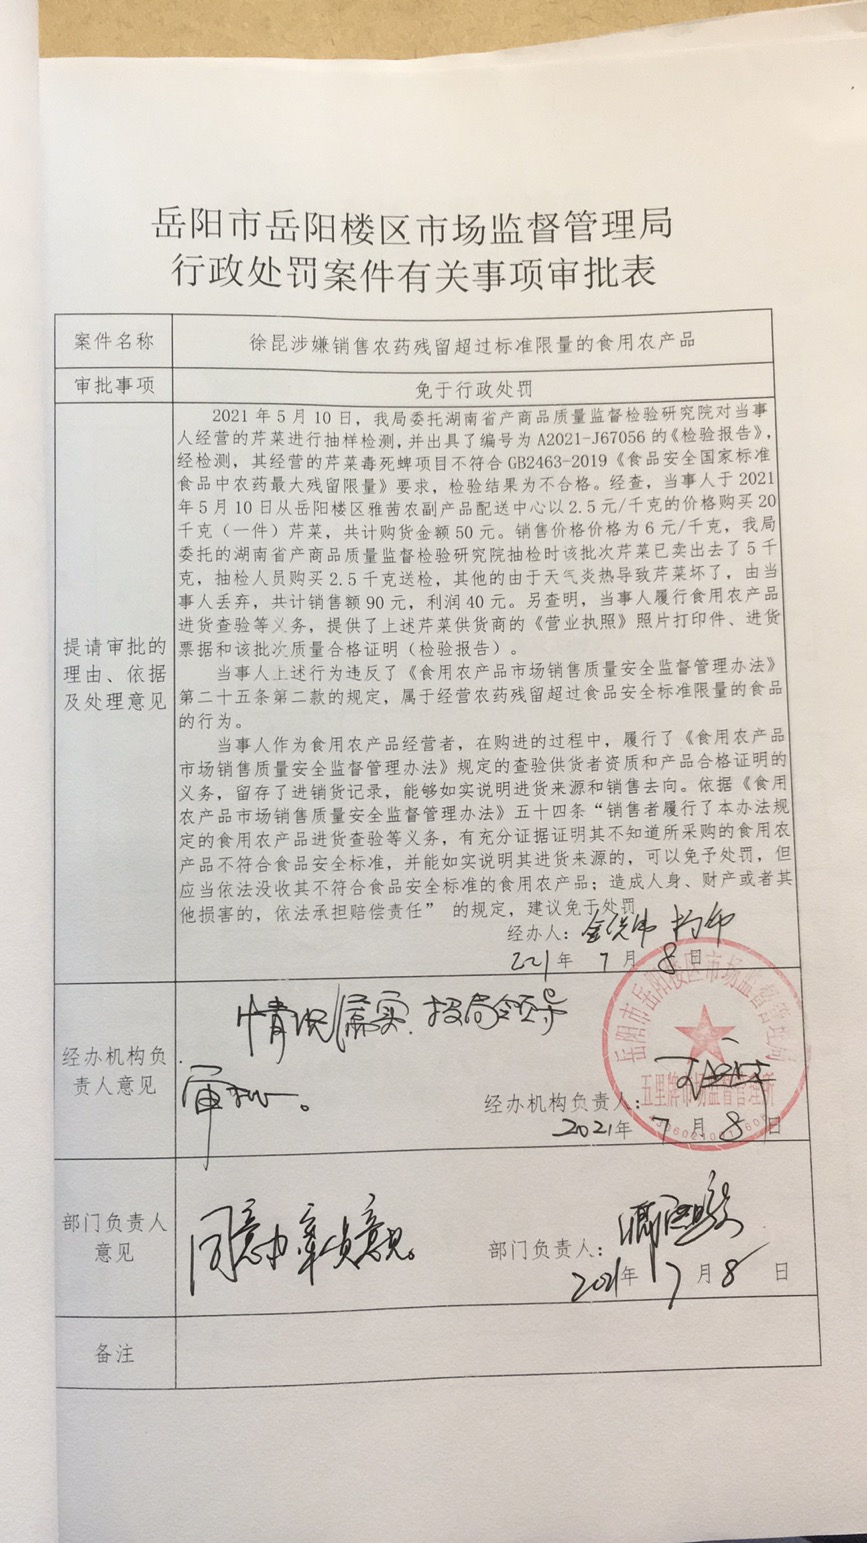 岳阳市岳阳楼区市场监督管理局
行政处罚案件有关事项审批表
案件名称
徐昆涉嫌销售农药残留超过标准限量的食用农产品
审批事项
免于行政处罚
提请审批的
理由、依据
及处理意见
2021年5月10日，我局委托湖南省产商品质量监督检验研究院对当事
人经营的芹菜进行抽样检测，并出具了编号为A2021-J67056的《检验报告》，
经检测，其经营的芹菜毒死蜱项目不符合GB2463-2019《食品安全国家标准
食品中农药最大残留限量》要求，检验结果为不合格。经查，当事人于2021
年5月10日从岳阳楼区雅茜农副产品配送中心以2.5元/千克的价格购买20
千克（一件）芹菜，共计购货金额50元。销售价格价格为6元/千克，我局
委托的湖南省产商品质量监督检验研究院抽检时该批次芹菜已卖出去了5千
克，抽检人员购买2.5千克送检，其他的由于天气炎热导致芹菜坏了，由当
事人丢弃，共计销售额90元，利润40元。另查明，当事人履行食用农产品
进货查验等义务，提供了上述芹菜供货商的《营业执照》照片打印件、进货
票据和该批次质量合格证明（检验报告）。
当事人上述行为违反了《食用农产品市场销售质量安全监督管理办法》
第二十五条第二款的规定，属于经营农药残留超过食品安全标准限量的食品
的行为。
当事人作为食用农产品经营者，在购进的过程中，履行了《食用农产品
市场销售质量安全监督管理办法》规定的查验供货者资质和产品合格证明的
义务，留存了进销货记录，能够如实说明进货来源和销售去向。依据《食用
农产品市场销售质量安全监督管理办法》五十四条“销售者履行了本办法规
定的食用农产品进货查验等义务，有充分证据证明其不知道所采购的食用农
产品不符合食品安全标准，并能如实说明其进货来源的，可以免予处罚，但
应当依法没收其不符合食品安全标准的食用农产品；造成人身、财产或者其
他损害的，依法承担赔偿责任” 的规定，建议免于处罚
经办人：
221年 7月8日
经办机构负
责人意见
情况属实，报局领导
审批。
经办机构负责人：
2021年 7月8日
岳阳市岳阳楼区市场监督管理局
五里牌市场监督管理所
部门负责人
意见
同意办案员意见。
部门负责人：
2021年7月8日
备注